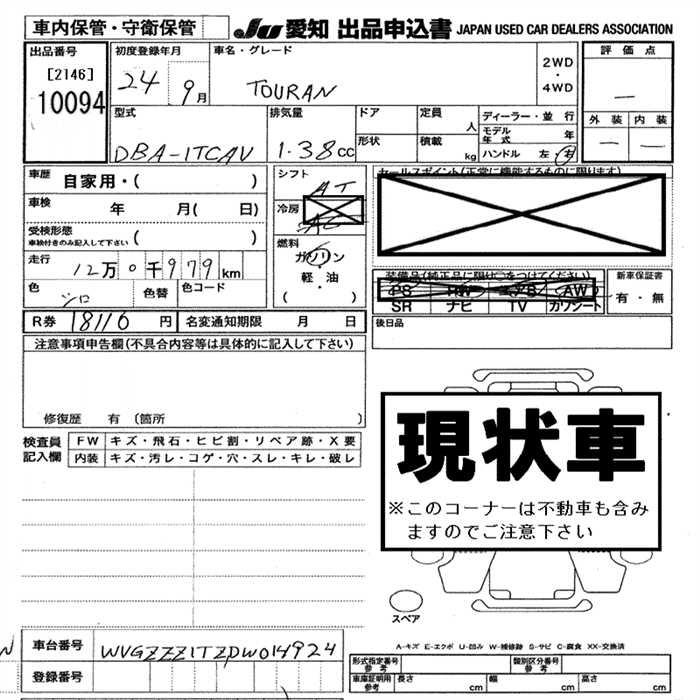 車内保管・守衛保管
JU 愛知 出品申込書 JAPAN USED CAR DEALERS ASSOCIATION
出品番号
[2146]
10094
初度登録年月
24 9月
車名・グレード
TOURAN
2WD
・
4WD
評価点
—
外装 内装
— —
型式
DBA-1TCAV
排気量
1.38cc
ドア
形状
定員
人
積載
kg
ディーラー・並行
モデル年式 年
ハンドル 左・右
車歴 自家用・( )
車検 年 月( 日)
受検形態
車検付きのみ記入して下さい ( )
走行 12万0千979km
色 シロ
色替
色コード
シフト AT
冷房 AC
燃料
ガソリン
・
軽・油
( )
セールスポイント(正常に機能するものに限ります)
装備品(純正品に限せ○をつけてください)
PS PW エアB AW
SR ナビ TV カワシート
新車保証書
有・無
R券 18116円
名変通知期限 月 日
後日品
注意事項申告欄(不具合内容等は具体的に記入して下さい)
修復歴 有(箇所 )
検査員記入欄
FW キズ・飛石・ヒビ割・リペア跡・X要
内装 キズ・汚レ・コゲ・穴・スレ・キレ・破レ
現状車
※このコーナーは不動車も含み
ますのでご注意下さい
スペア
A-キズ E-エクボ U-凹み W-補修跡 S-サビ C-腐食 XX-交換済
車台番号 WVGZZZ1TZDW014924
登録番号
形式指定番号 参考
類別区分番号 参考
車庫証明用 参考
長さ cm
幅 cm
高さ cm